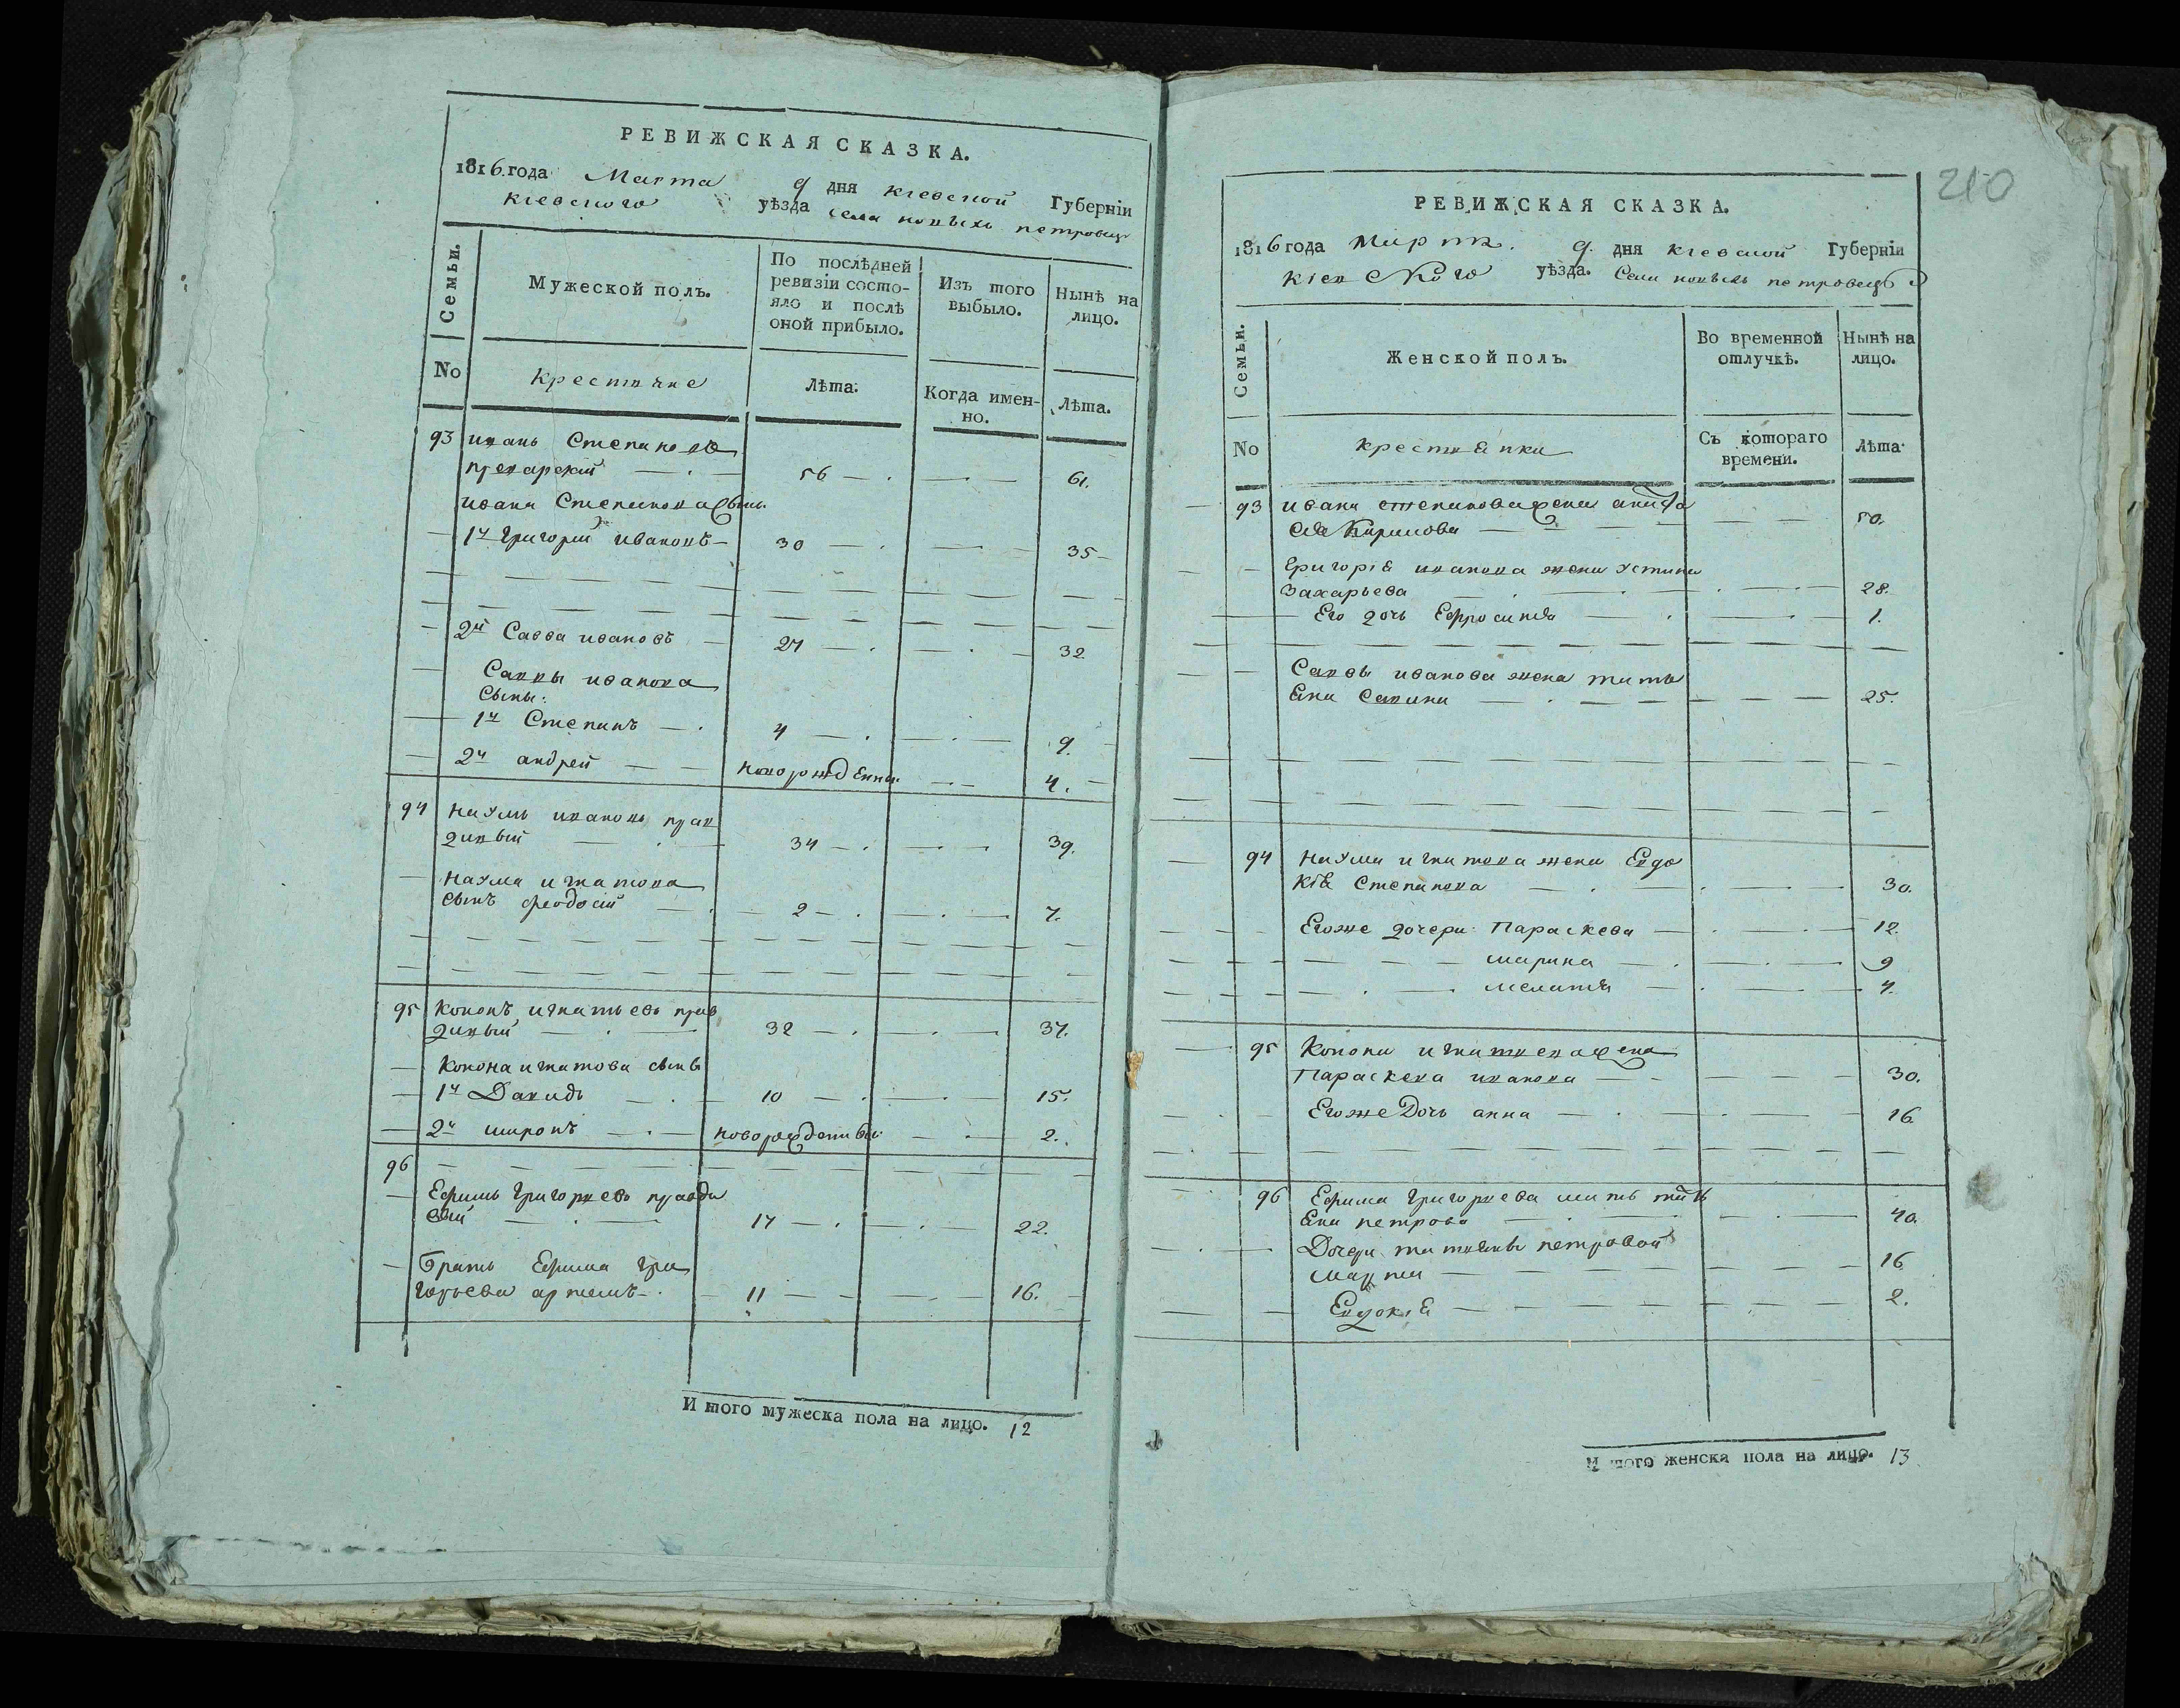 РЕВИЖСКАЯ СКАЗКА.
1816 года Марта 9 дня кіевской Губерніи
кіевского уѣзда села новыхъ петровецъ
Семьи.
Мужеской полъ.
По послѣдней ревизіи состояло и послѣ оной прибыло.
Изъ того выбыло.
Нынѣ на лицо.
No
крестяне
Лѣта.
Когда именно.
Лѣта.
93 иванъ Степановъ
56 — . — . — 61.
ивана Степанова сыны
1й Григорій ивановъ — 30 — . — 35 —
2й Савва ивановъ — 27 — . — . — 32
Саввы иванова
сыны:
1й Степанъ — . 4 — . — . — 9.
2й андрей — — новорожденный — . — 4. —
94 Наумъ
дивый — . — 34 — . — . — 39.
Наума игнатова
сынъ феодосий — . — 2 — . — . — 7.
95 Кононъ игнатьевъ прав
дивый — . — 32 — . — . — 37.
Конона игнатова сыны
1й Давидъ — . — 10 — . — . — 15.
2й миронъ — . — новорожденный — . — 2.
96
Ефимъ Григорьевъ правди
вый — . — 17 — . — . — 22.
Братъ Ефима Гри
горьева артемъ — . — 11 — — — . — 16. —
И того мужеска пола на лицо. 12
210
РЕВИЖСКАЯ СКАЗКА.
1816 года марта. 9. дня кіевской Губерніи
кіевского уѣзда. Села новыхъ петровецъ
Семьи.
Женской полъ.
Во временной отлучкѣ.
Нынѣ на лицо.
No
крестянки
Съ котораго времени.
Лѣта.
93 ивана степанова жена
Кирилова — 50.
Григорія иванова жена Устина
Захарьева — . — 28.
Его дочь Ефросинія — . — . — 1.
Саввы иванова жена татья
яна Савина — . — 25.
94 Наума игнатова жена Евдо
кія Степанова — . — . — 30.
Егоже дочери Параскева — . — . — 12.
марина — . — . — 9
мелатія — . — . — 4.
95 Конона игнатиева жена
Параскева иванова — — 30.
Егоже Дочь анна — . — . — 16
96 Ефима Григориева мать татя
яна петрова — . — . — 40.
Дочери татияны петровой
марта — 16
Евдокія — 2.
И того женска пола на лицо. 13